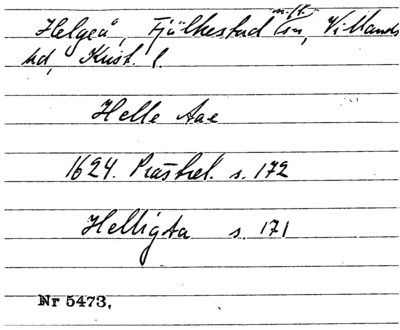 Helgeå, Fjälkestad m.fl. sn, Villands
hd, Krist. l.
Helle Aae
1624. Prästrel. s. 172
Helligaa s. 171
Nr 5473.